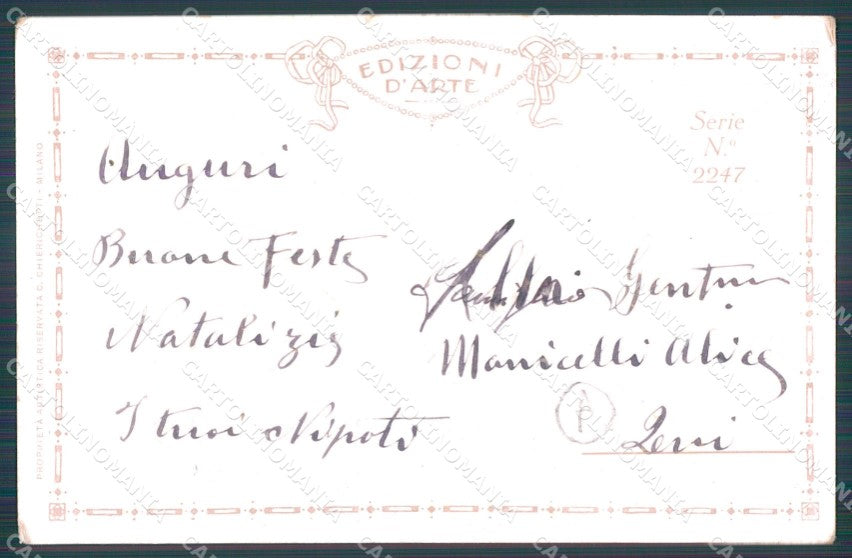 EDIZIONI
D'ARTE
Serie
N.º
2247
PROPRIETÀ ARTISTICA RISERVATA C. CHIERICHETTI - MILANO
Auguri
Buone Feste
Natalizie
I tuoi Nipoti
Manicelli Alice
P
CARTOLINOMANIA